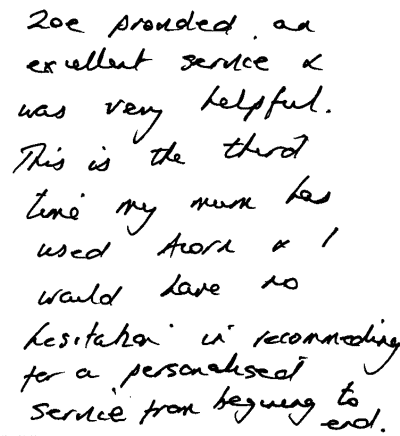 Zoe provided an
excellent service &
was very helpful.
This is the third
time my mum has
used Acorn & I
would have no
hesitation in recommeding
for a personalised
service from begining to
end.